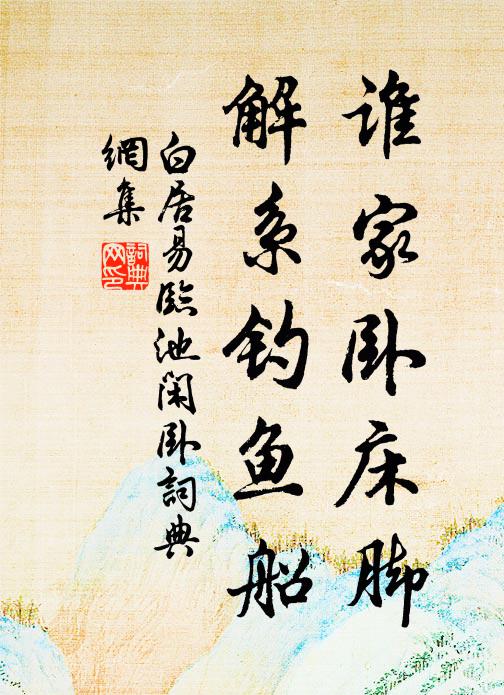 谁家卧床脚
解系钓鱼船
白居易臨池閑卧詞典
網集
詞典网印